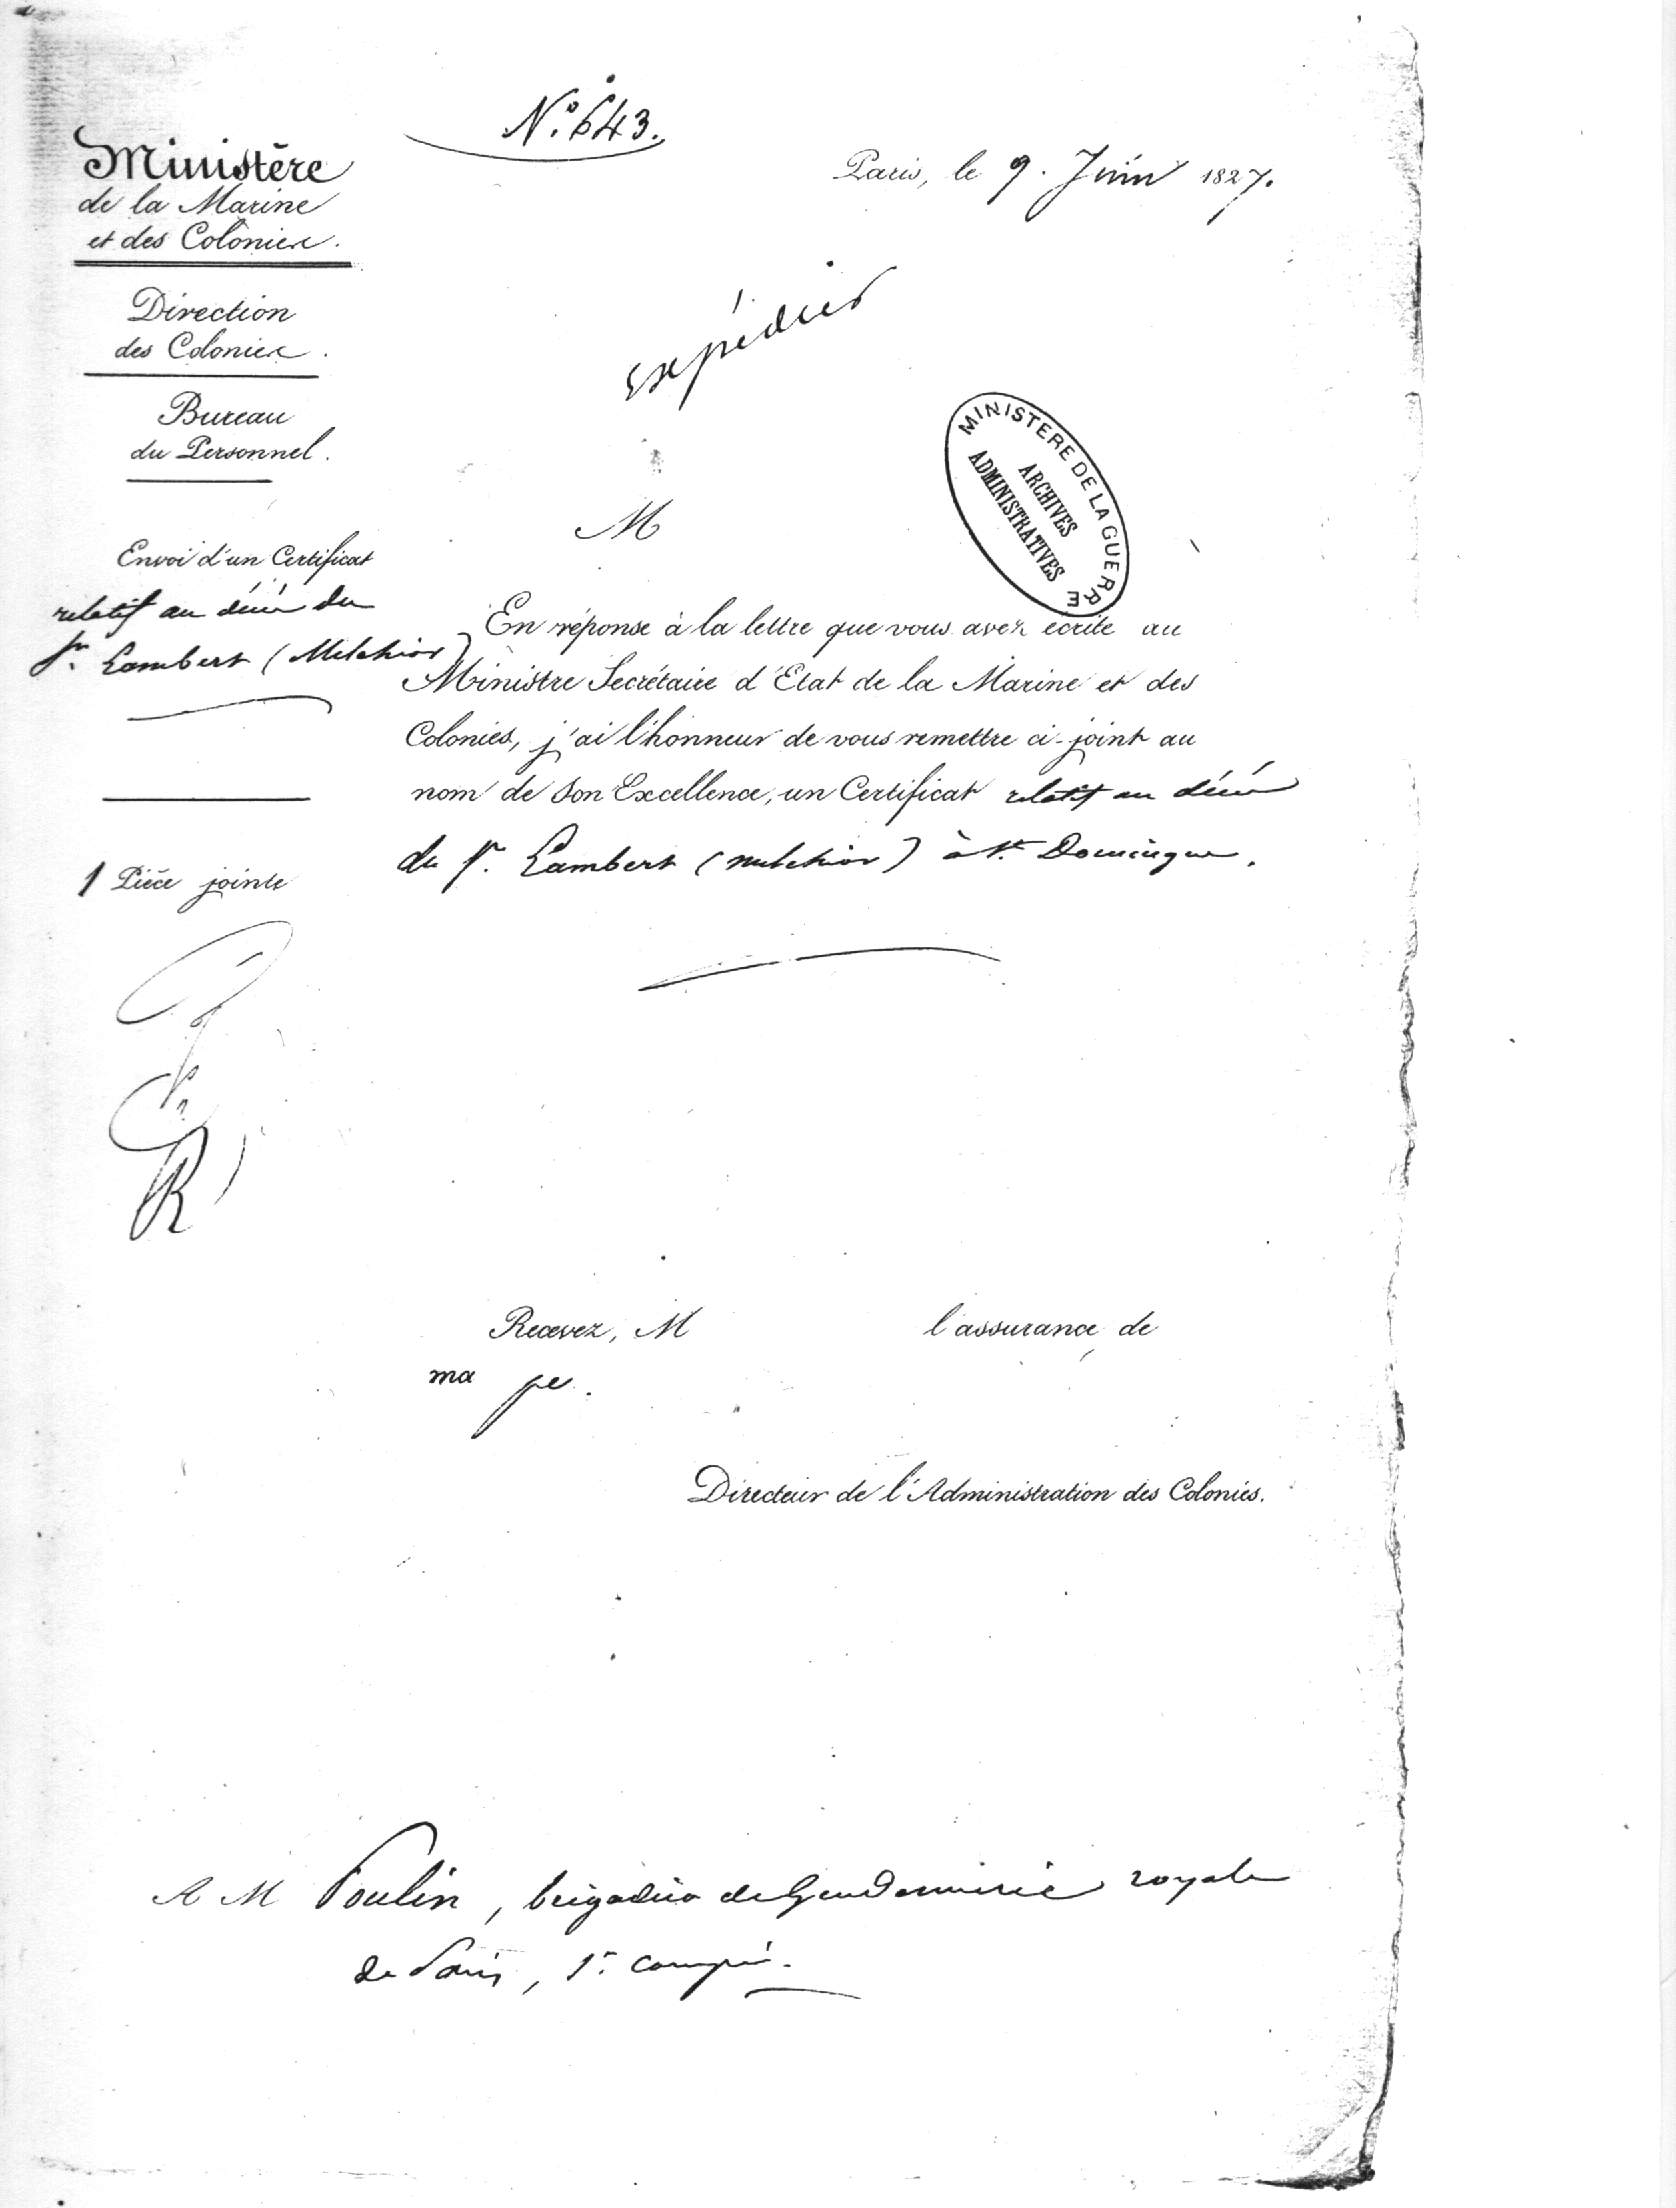 N.º 643.
Ministère
de la Marine
et des Colonies.
Paris, le 9. Juin 1827.
Direction
des Colonies.
Bureau
du Personnel.
expédier
MINISTERE DE LA GUERRE
ARCHIVES
ADMINISTRATIVES
M
Envoi d'un Certificat
relatif au décès du
Sr. Lambert (Melchior)
1 Pièce jointe
En réponse à la lettre que vous avez écrite au
Ministre Secrétaire d'Etat de la Marine et des
Colonies, j'ai l'honneur de vous remettre ci-joint au
nom de Son Excellence, un Certificat relatif au décès
du Sr. Lambert (melchior) à St. Domingue.
R
Recevez, M l'assurance de
ma
Directeur de l'Administration des Colonies.
A M Poulin, brigadier de Gendarmerie royale
de Paris, 1re. compie.